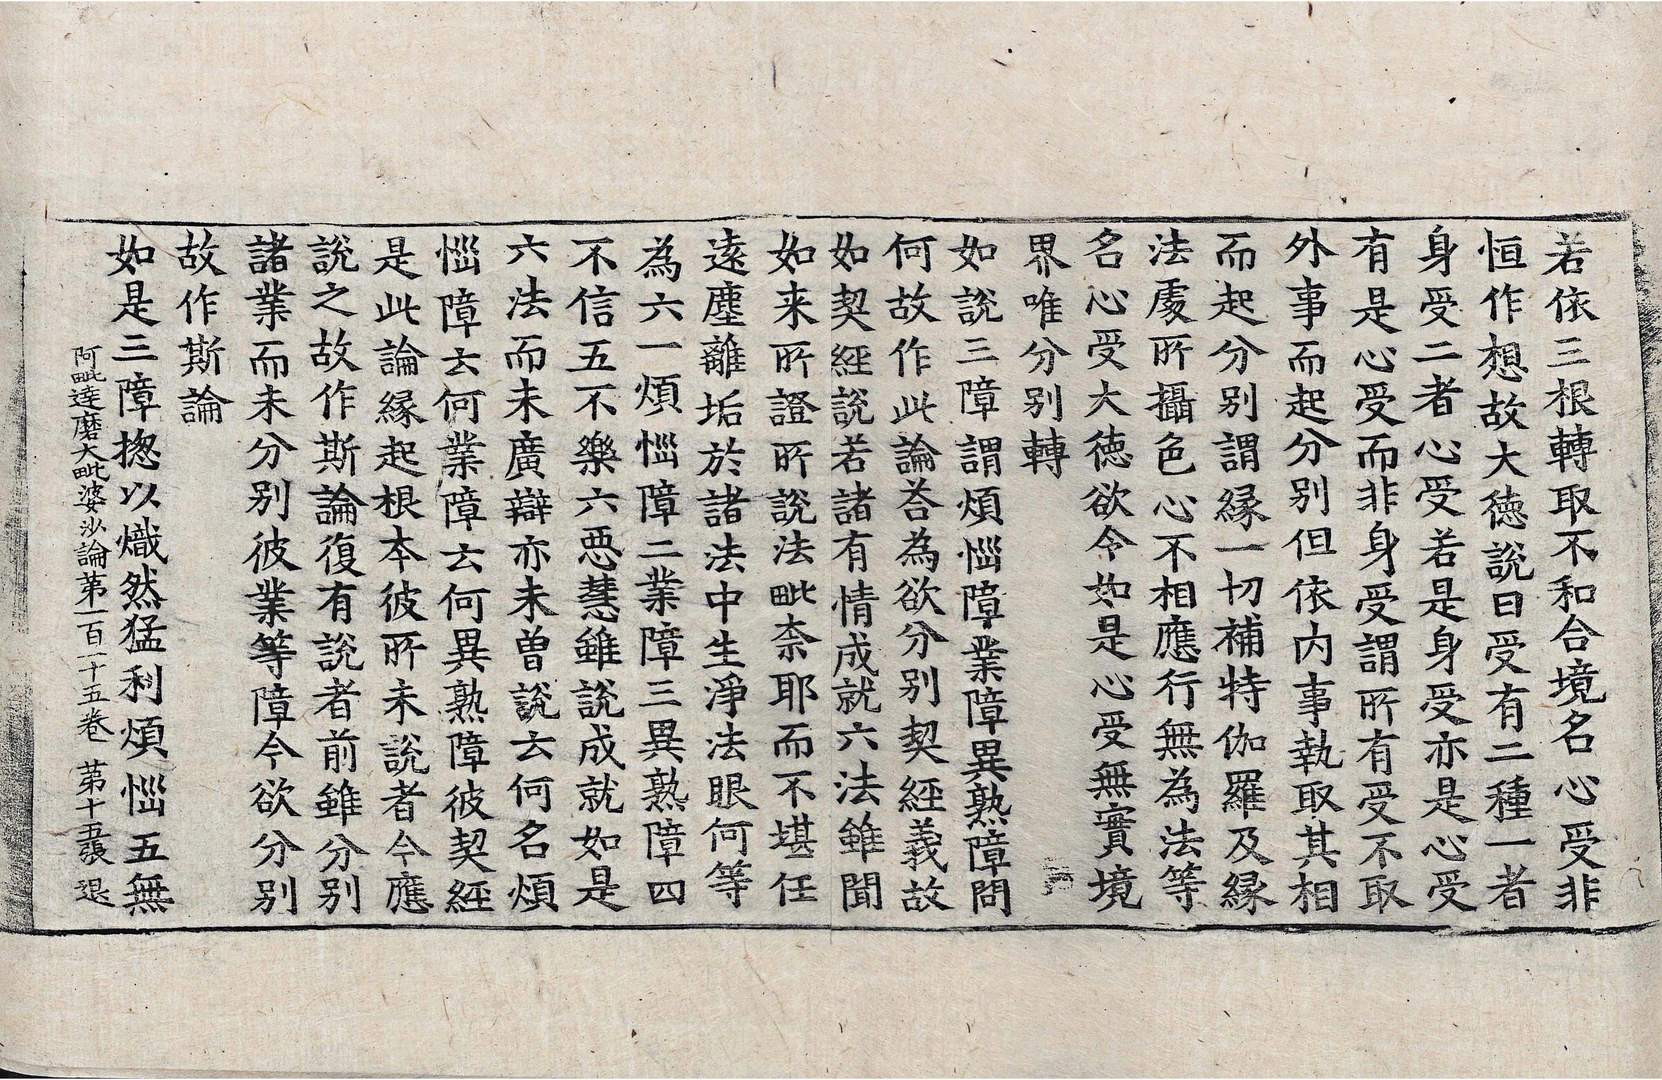 若依三根轉取不和合境名心受非
恒作想故大徳說曰受有二種一者
身受二者心受若是身受亦是心受
有是心受而非身受謂所有受不取
外事而起分別但依内事執取其相
而起分別謂縁一切補特伽羅及縁
法處所攝色心不相應行無為法等
名心受大徳欲令如是心受無實境
界唯分別轉
如說三障謂煩惱障業障異熟障問
何故作此論荅為欲分別契經義故
如契經說若諸有情成就六法雖聞
如来所證所說法毗柰耶而不堪任
遠塵離垢於諸法中生淨法眼何等
為六一煩惱障二業障三異熟障四
不信五不樂六惡慧雖說成就如是
六法而未廣辯亦未曽說云何名煩
惱障云何業障云何異熟障彼契經
是此論縁起根本彼所未說者今應
說之故作斯論復有說者前雖分別
諸業而未分別彼業等障今欲分別
故作斯論
如是三障揔以熾然猛利煩惱五無
阿毗達磨大毗婆沙論第一百一十五卷 第十五張 退